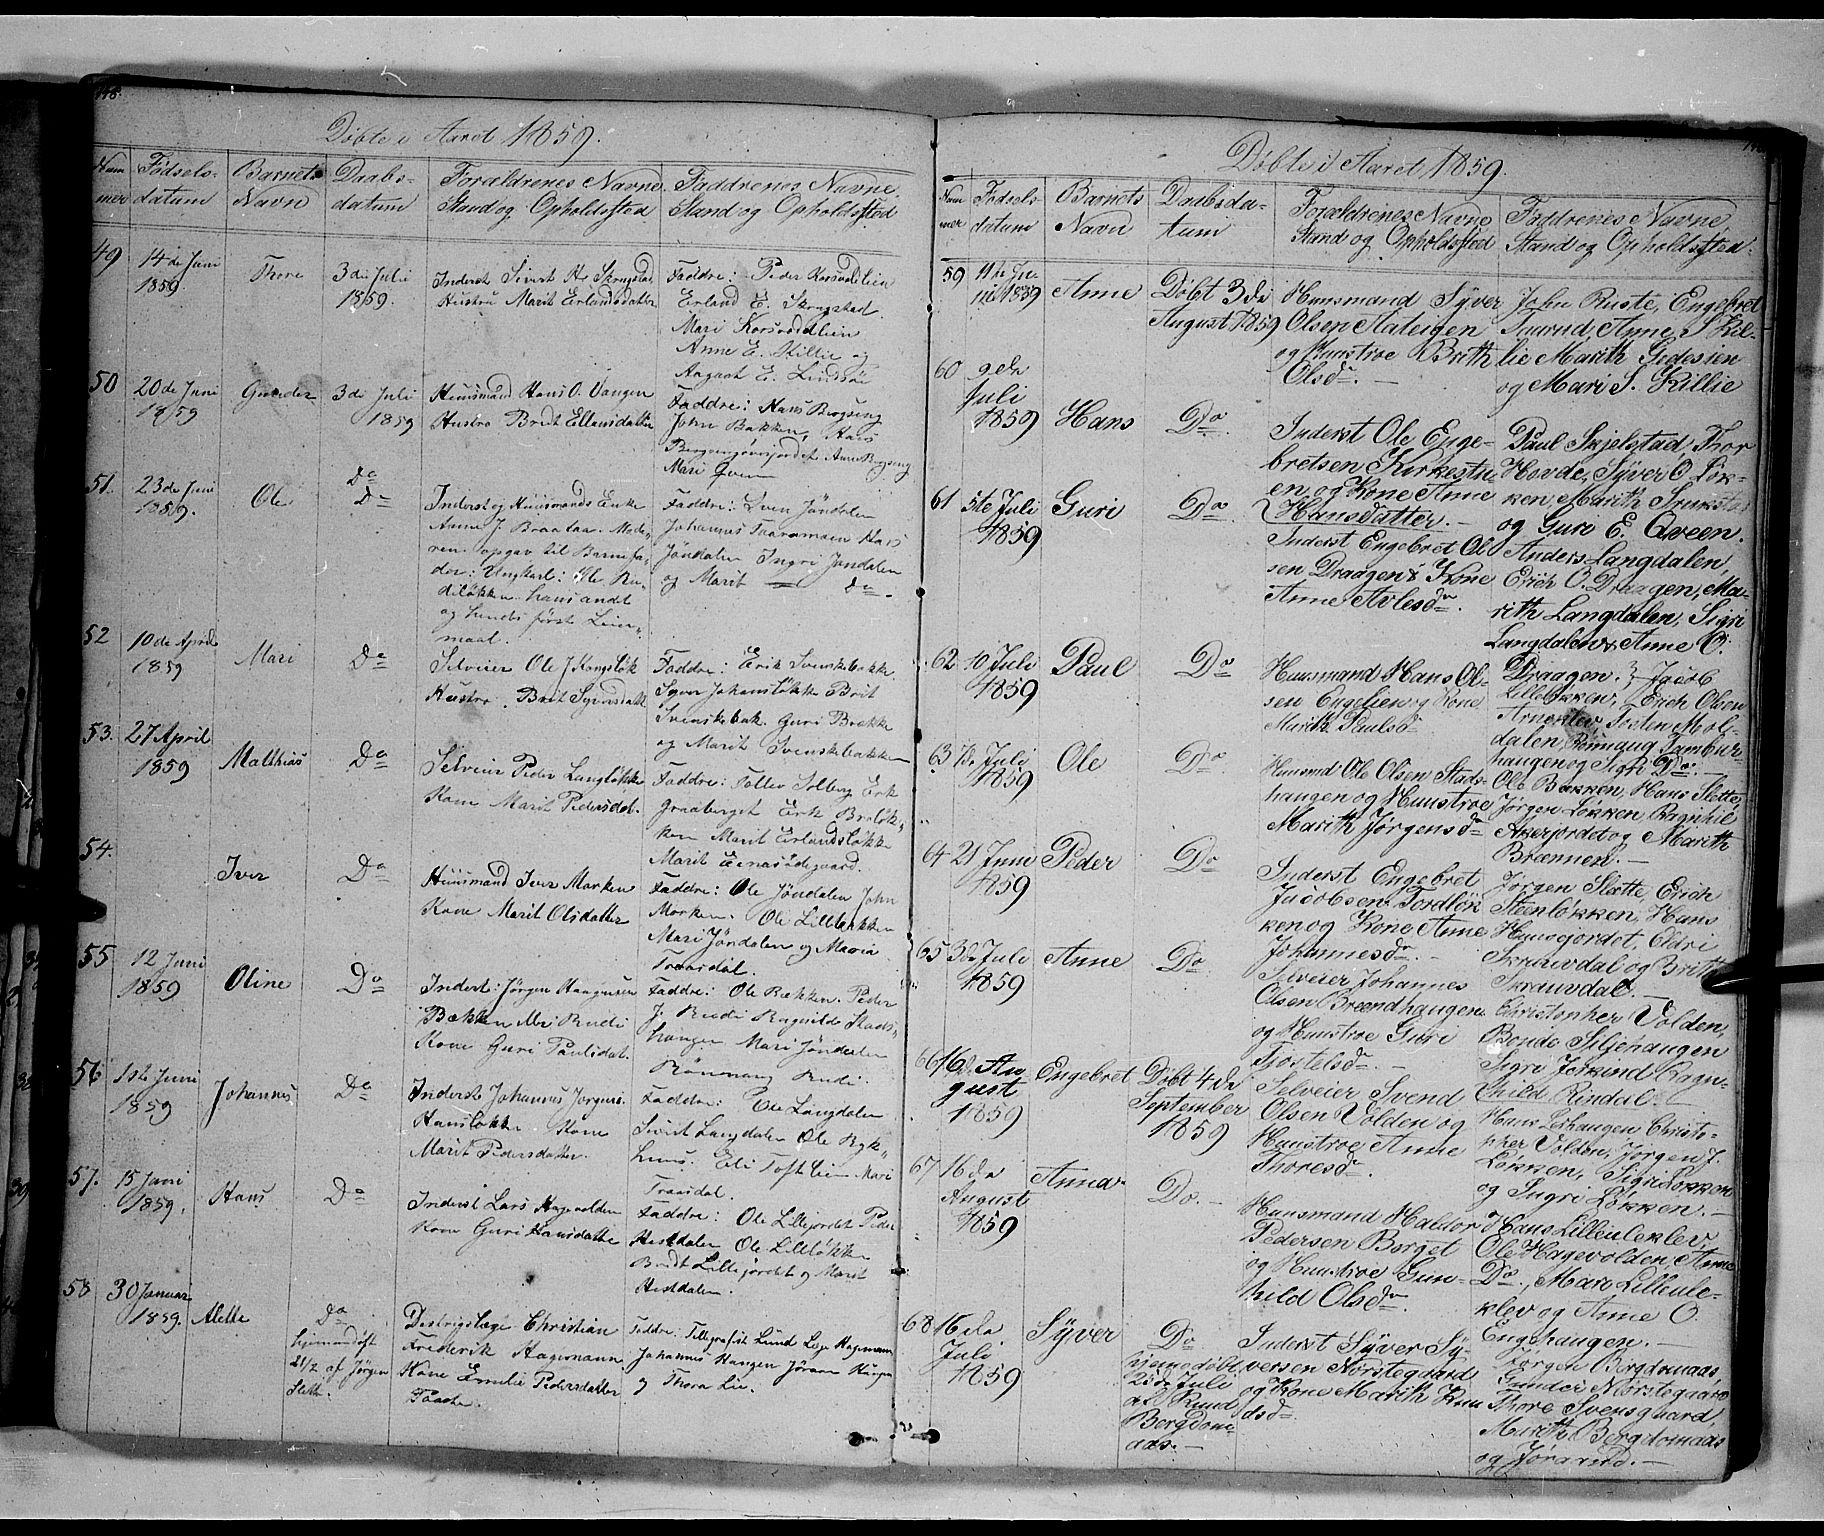 148.
Döbte i Aaret 1859.
Num
mer
Födsels-
datum
Barnets
Navn
Daabs-
datum
Forældrenes Navne
Stand og Opholdssted
Faddrenes Navne
Stand og Opholdssted
49
14de Juni
1859.
Thore
3die Julie
1859.
Inderst Sivert H Skrugstad
Hustru Marit Erlandsdatter
Faddre: Peder Korsvoldlien
Erland E. Skrugstad
Mari Korsvoldlien
Anne E. Killie og
Aagaat E. Lindsöe
50
20de Juni
1859
Gunder
3die Julie
1859
Huusmand Hans O. Vangen
Hustro Bredt Ellansdatter
Faddre: Hans Bergseng
John Bakken, Hans
Bergsengövrejordet Anne Bergseng
Mari Qveen
51.
23de Juni
1859.
Ole
Do
Do
Inderst og Huusmands Enke
Anne J. Braatan. Mode-
ren opgav til Barnefa-
der: Ungkarl: Ole Ru-
diløkken hans andet
og hendes første Leier-
maal.
Faddre: Sven Jöndalen
Johannes Hans
Jöndalen Ingri Jöndalen
og Marit — do.
52
10de April
1859
Mari
Do
Selveier Ole J Kongsløk
Hustro. Brit Syversdatt
Faddre: Erik Svenskebakke
Syver Johansløkke Brit
Svenskebak. Guri Brække
og Marit Svenskebakken
53.
27 April
1859
Matthias
Do
Selveier Peder Langløkke
Kone Marit Pedersdat.
Faddre: Tollev Solberg Erik
Graaberget Erik Breløk-
ken Marit Erlandsløkke
Marit Einastdegaard.
54.
Iver
Do
Huusmand Iver Morken
Kone Marit Olsdatter
Faddre: Ole Jöndalen John
Morken. Ole Lilleløkken
Mari Jöndalen og Maria
Traasdal.
55
12 Juni
1859
Oline
Do
Inderst: Jörgen Haagensen
Bækken Kone Guri Paulsdat.
Faddre: Ole Bækken. Peder
J. Rudi Ragnilde Stads-
haugen Mari Jöndalen
Rönnaug Rudi.
56
1ste Juni
1859
Johannes
Do
Inderste Johannes Jorgens.
Hansløkken Kone
Marit Pedersdatter
Faddre: Ole Langdalen
Sivert Langdalen Ole Byk-
huus. Eli Toftlien Mari
Traasdal.
57.
15 Juni
1859.
Hans
Do
Inderst Lars Hagevolden
Kone Guri Hansdatte
Faddre: Ole Lillejordet Peder
Hestdalen Ole Lilleløkken
Bredt Lillejordet og Marit
Hestdalen.
58
30 Januar
1859.
Alette
Do
hjemmedöbt
21/2 af Jörgen
Sletti
Destrigslæge Christian
Frederik Hagemann
Kone Emilie Pedersdatter
Faaste.
Faddre: Tellegrafist Lund Lege Hagemann
Johannes Haugen Jöran Haugen
og Thora Lie.
Döbte i Aaret 1859.
Num
mer
Födsels-
datum
Barnets
Navn
Daabsda-
tum
Forældrenes Navne
Stand og Opholdssted
Faddrenes Navne
Stand og Opholdssted.
59
11te Ju-
ni 1859
Anne
Döbt 3de
August 1859
Huusmand Syver
Olsen Stateigen
og Huustroe Brith
Olsdr. —
John Ruste, Engebret
Taarud, Anne S. Kil-
lie Marith Sidesien
og Mari S. Killie
60
9de
Juli
1859
Hans
Do
Inderst Ole Enge-
bretsen Kirkestu-
en og Kone Anne
Hansdatter. —
Paul Skjelstad, Thor
Hovde, Syver O. Løk-
ken, Marith
og Guri E. Qveen.
61
5te Juli
1859
Guri
Do
Inderst Engebret Ol-
sen Draagen & Kone
Anne Avlesdr.
Anders Langdalen,
Erich O. Draagen, Ma-
rith Langdalen, Sigri
Langdalen & Anne O.
Draagen.
62
10 Juli
1859
Paul
Do
Huusmand Hans Ol-
sen Engelien og Kone
Marith Paulsdr
Jacob
Lilleløkken, Erich Olsen
Arneklev, Iosten Mol-
dalen, Rönnaug Tambur-
haugen og Sigri Do. —
63
Juli
1859
Ole
Do
Huusmd Ole Olsen Stads-
haugen og Huustroe
Marith Jörgensdr
Ole Bækken, Hans Slette,
Jörgen Løkken Ragnhil
Akerjordet og Marith
Brænnen. —
64
21 Juni
1859
Peder
Do
Inderst Engebret
Jacobsen Tordløk-
ken og Kone Anne
Johannesdr. —
Jörgen Slette, Erich
Steenløkken, Hans
Huusejordet, Eldri
Skrauvdal og Brith
Skrauvdal. —
65
3de Juli
1859
Anne
Do
Selveier Johannes
Olsen Brændhaugen
og Huustroe Guri
Tjostelsdr. —
Christopher Volden,
Bonde Siljehaugen
Sigri Jorkind Ragn-
hild Rindal. —
66
16de Au-
gust
1859
Engebret
Döbt 4de
September
1859
Selveier Svend
Olsen Volden og
Huustroe Anne
Thoresdr.
Hans Lerhaugen Christo-
pher Volden, Jörgen J.
Løkken, Sigri Løkken
og Ingri Løkken. —
67
16de
August
1859
Anna
Do. —
Huusmand Haldor
Pedersen Berget
og Huustroe Gun-
hild Olsdr.
Hans Lilleuleklev,
Ole Hagevolden, Anne
Do, Mari Lilleule-
klev og Anne O.
Engehaugen. —
68
16de
Juli
1859
Syver
Do
hjemedöbt
25de Juli
af Knud
Bergdom-
aas. —
Inderst Syver Sy-
versen Norstegaard
og Kone Marith Knu-
dsdr
Jörgen Bergdomaas,
Gunder Norstegaard
Thore Svensgaard,
Marith Bergdomaas
og Jörand Do. —